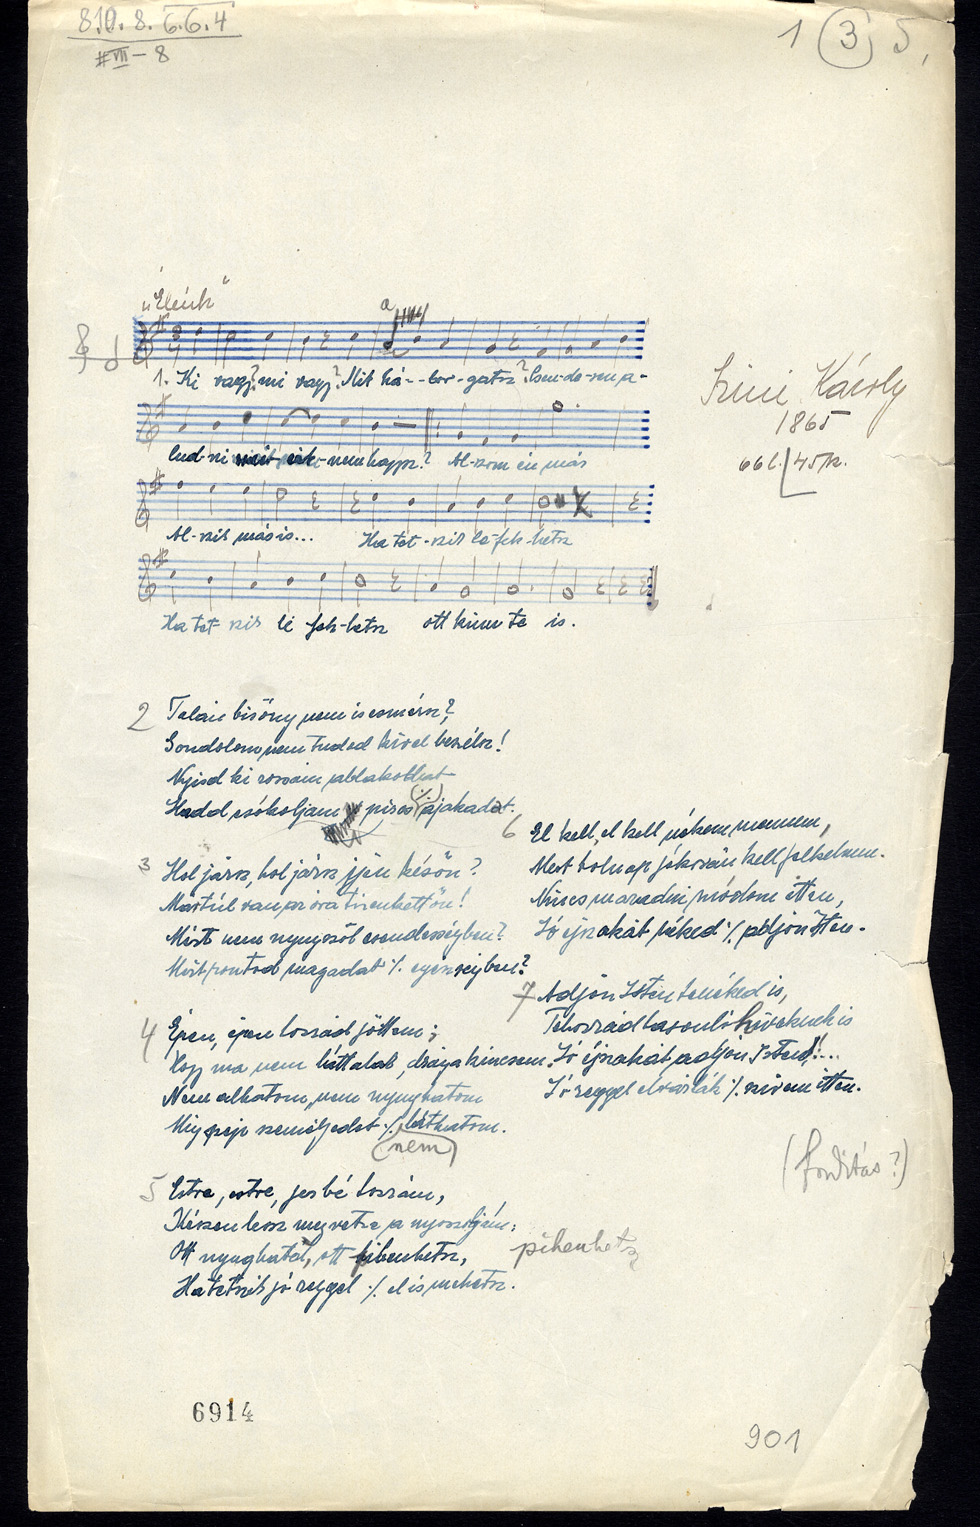 8.10.8.6.6.4
#VII-8
1 (3) 5,
„Élénk"
a
1. Ki vagy? mi vagy? Mit há--bor-gatsz? Csen-de-sen a-
lud-ni nem hagysz? Al-szom én más
Al-szik más is... Ha tet-szik le fek-hetsz
Ha tet-szik le fek-hetsz ott kinn te is.
Szini Károly
1865
66 l./45 sz.
2 Talán bizöny nem is esmérsz?
Gondolom nem tudod kivel beszélsz!
Nyisd ki rózsám ablakodhat
Hadd csókoljam piros (·/·) ajakadat.
3 Hol jársz, hol jársz ijjen késön?
Mastúl van az óra tizenkettőn!
Mért nem nyugszól csendességben?
Mért rontod magadat ·/· egésségben?
4 Épen, épen hozzád jöttem;
Hogy ma nem láttalak, drága kincsem.
Nem alhatom, nem nyughatom
Míg szép személyedet ·/· láthatom.
(nem)
5 Estre, estre, jer bé hozzám,
Készen lesz megvetve a nyoszolyám;
Ott nyughatol, ott pihenhetsz, pihenhetsz
Ha tetszik jó reggel ·/· el is mehetsz.
6 El kell, el kell nékem mennem,
Mert holnap jókorán kell felkelnem.
Nincs maradni módom itten,
Jó éjszakát néked ·/· adjon Isten.
7 Adjon Isten tenéked is,
Tehozzád hasonló hiveknek is
Jó éjszakát adjon Isten!...
Jó reggel elvárlak ·/· szivem itten.
(fordítás?)
6914
901